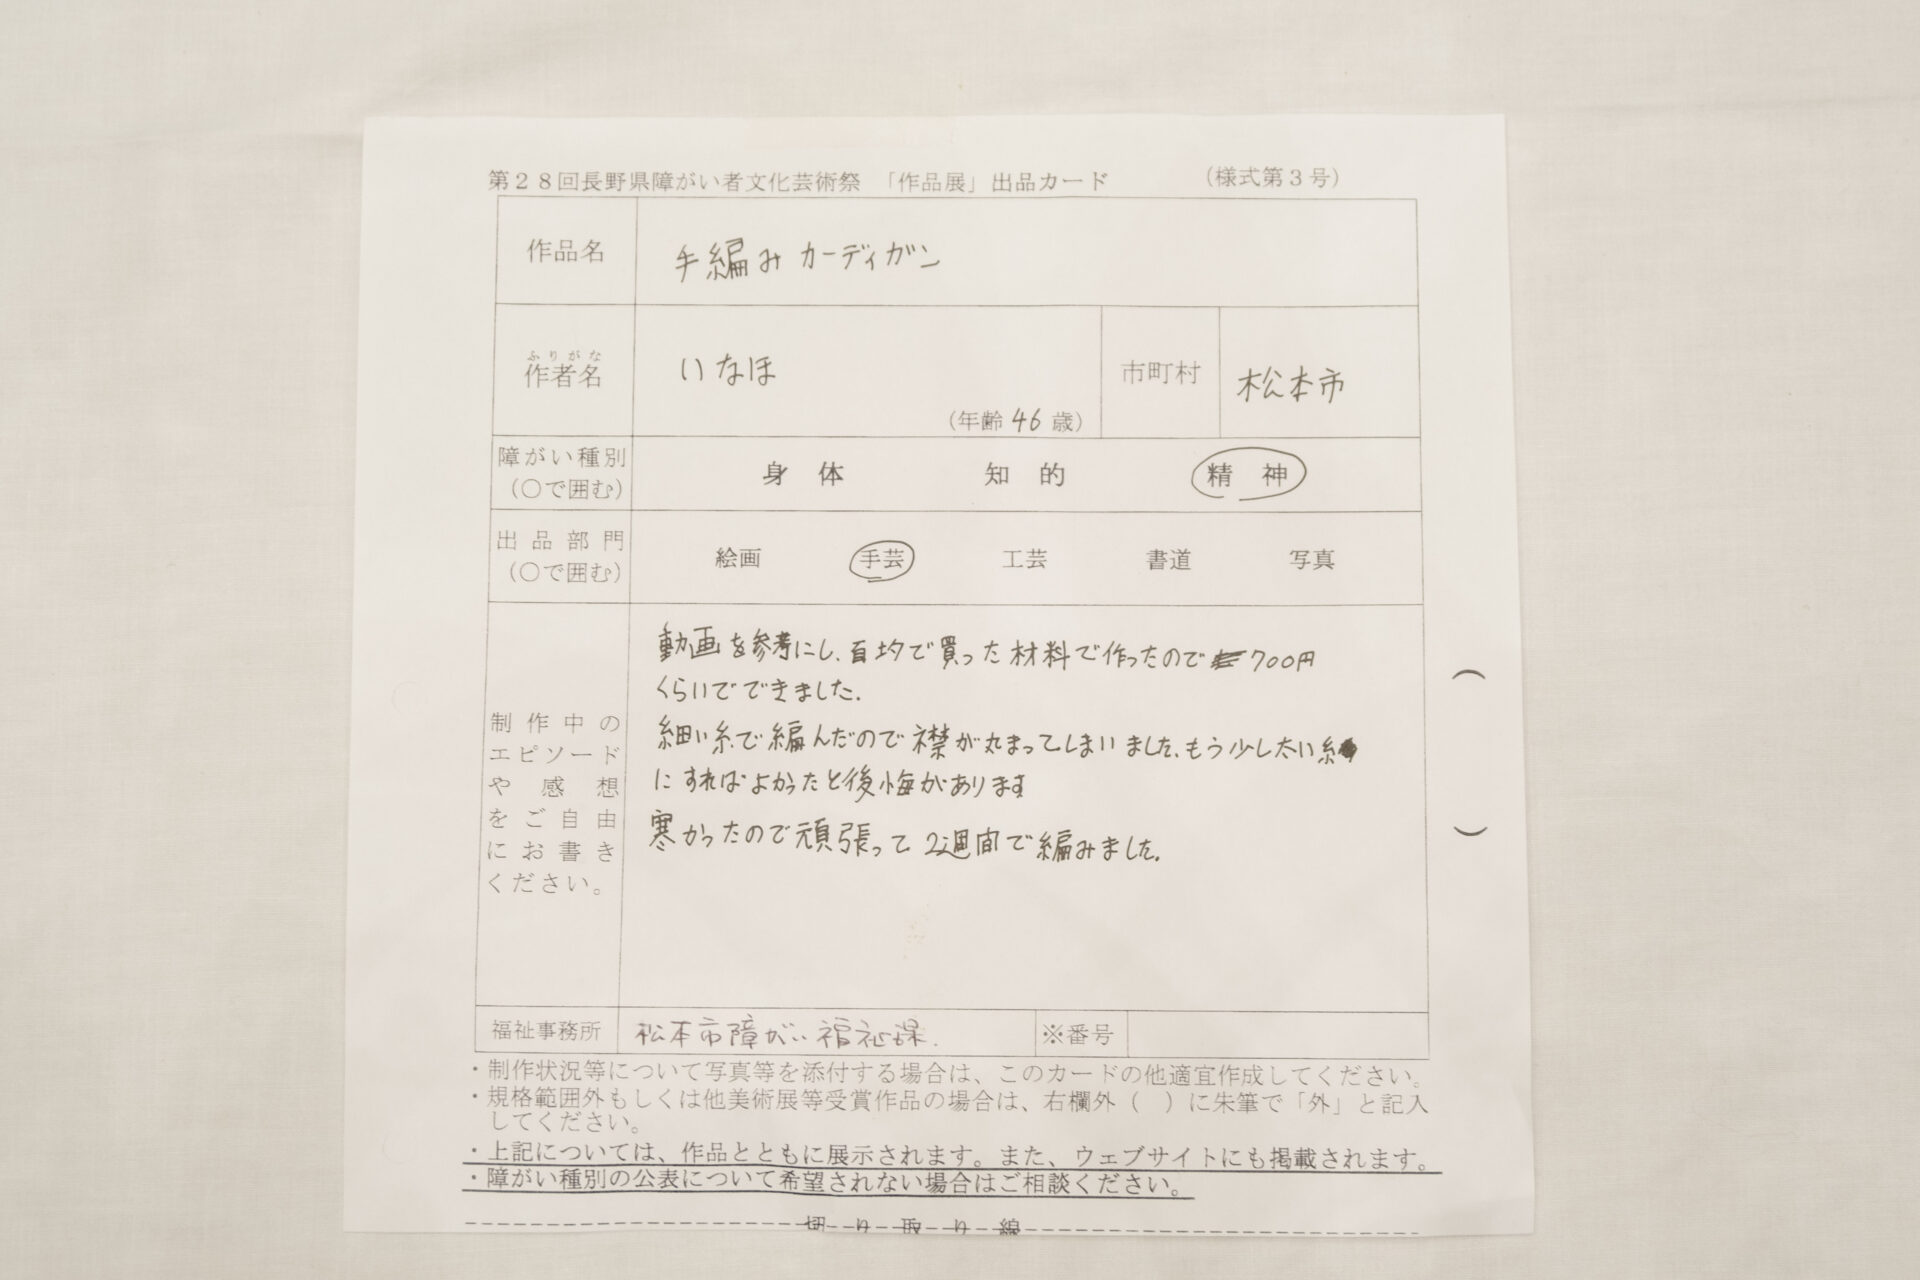 第２８回長野県障がい者文化芸術祭 「作品展」出品カード (様式第３号)
作品名 手編みカーディガン
ふりがな
作者名 いなほ
(年齢 46 歳)
市町村 松本市
障がい種別
(○で囲む)
身体 知的 精神
出品部門
(○で囲む)
絵画 手芸 工芸 書道 写真
制作中の
エピソード
や感想
をご自由
にお書き
ください。
動画を参考にし、百均で買った材料で作ったので700円
くらいでできました。
細い糸で編んだので襟が丸まってしまいました、もう少し太い糸
にすればよかったと後悔があります
寒かったので頑張って2週間で編みました。
(
)
福祉事務所 松本市障がい福祉課. ※番号
・制作状況等について写真等を添付する場合は、このカードの他適宜作成してください。
・規格範囲外もしくは他美術展等受賞作品の場合は、右欄外（　）に朱筆で「外」と記入
してください。
・上記については、作品とともに展示されます。また、ウェブサイトにも掲載されます。
・障がい種別の公表について希望されない場合はご相談ください。
切り取り線